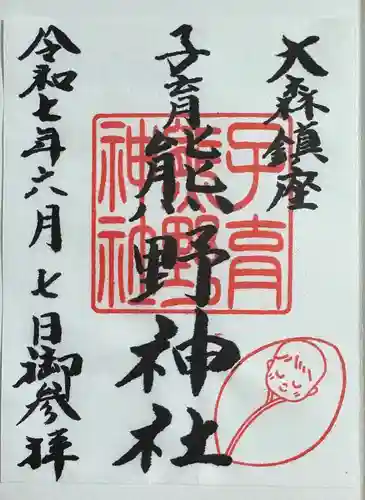 大森鎮座
子育熊野神社
令和七年六月七日御参拝
子育
熊野
神社